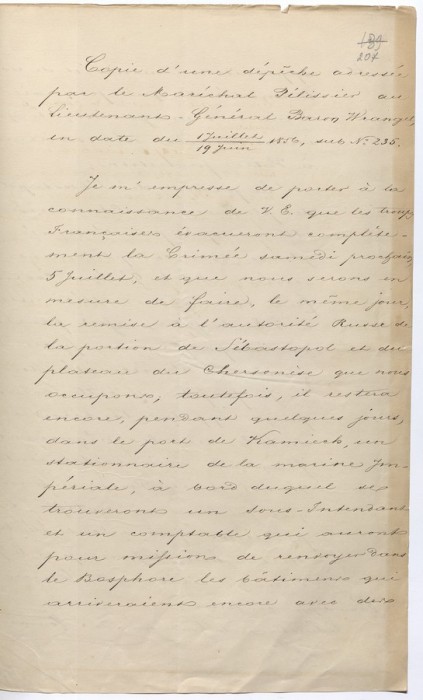 189
207
Copie d'une dépêche adressée
par le Maréchal Pélissier au
lieutenant-Général Baron Wrangel,
en date du 1 Juillet / 19 Juin 1856, sub № 235.
Je m'empresse de porter à la
connaissance de V. E. que les troupes
Françaises évacueront complète-
ment la Crimée samedi prochain,
5 Juillet, et que nous serons en
mesure de faire, le même jour,
la remise à l'autorité Russe de
la portion de Sébastopol et du
plateau du Chersonèse que nous
occupons, toutefois, il restera
encore, pendant quelques jours,
dans le port de Kamiesch, un
stationnaire de la marine Im-
périale, à bord duquel se
trouveront un sous-Intendant
et un comptable qui auront
pour mission de renvoyer dans
le Bosphore les bâtimens qui
arriveraient encore avec des